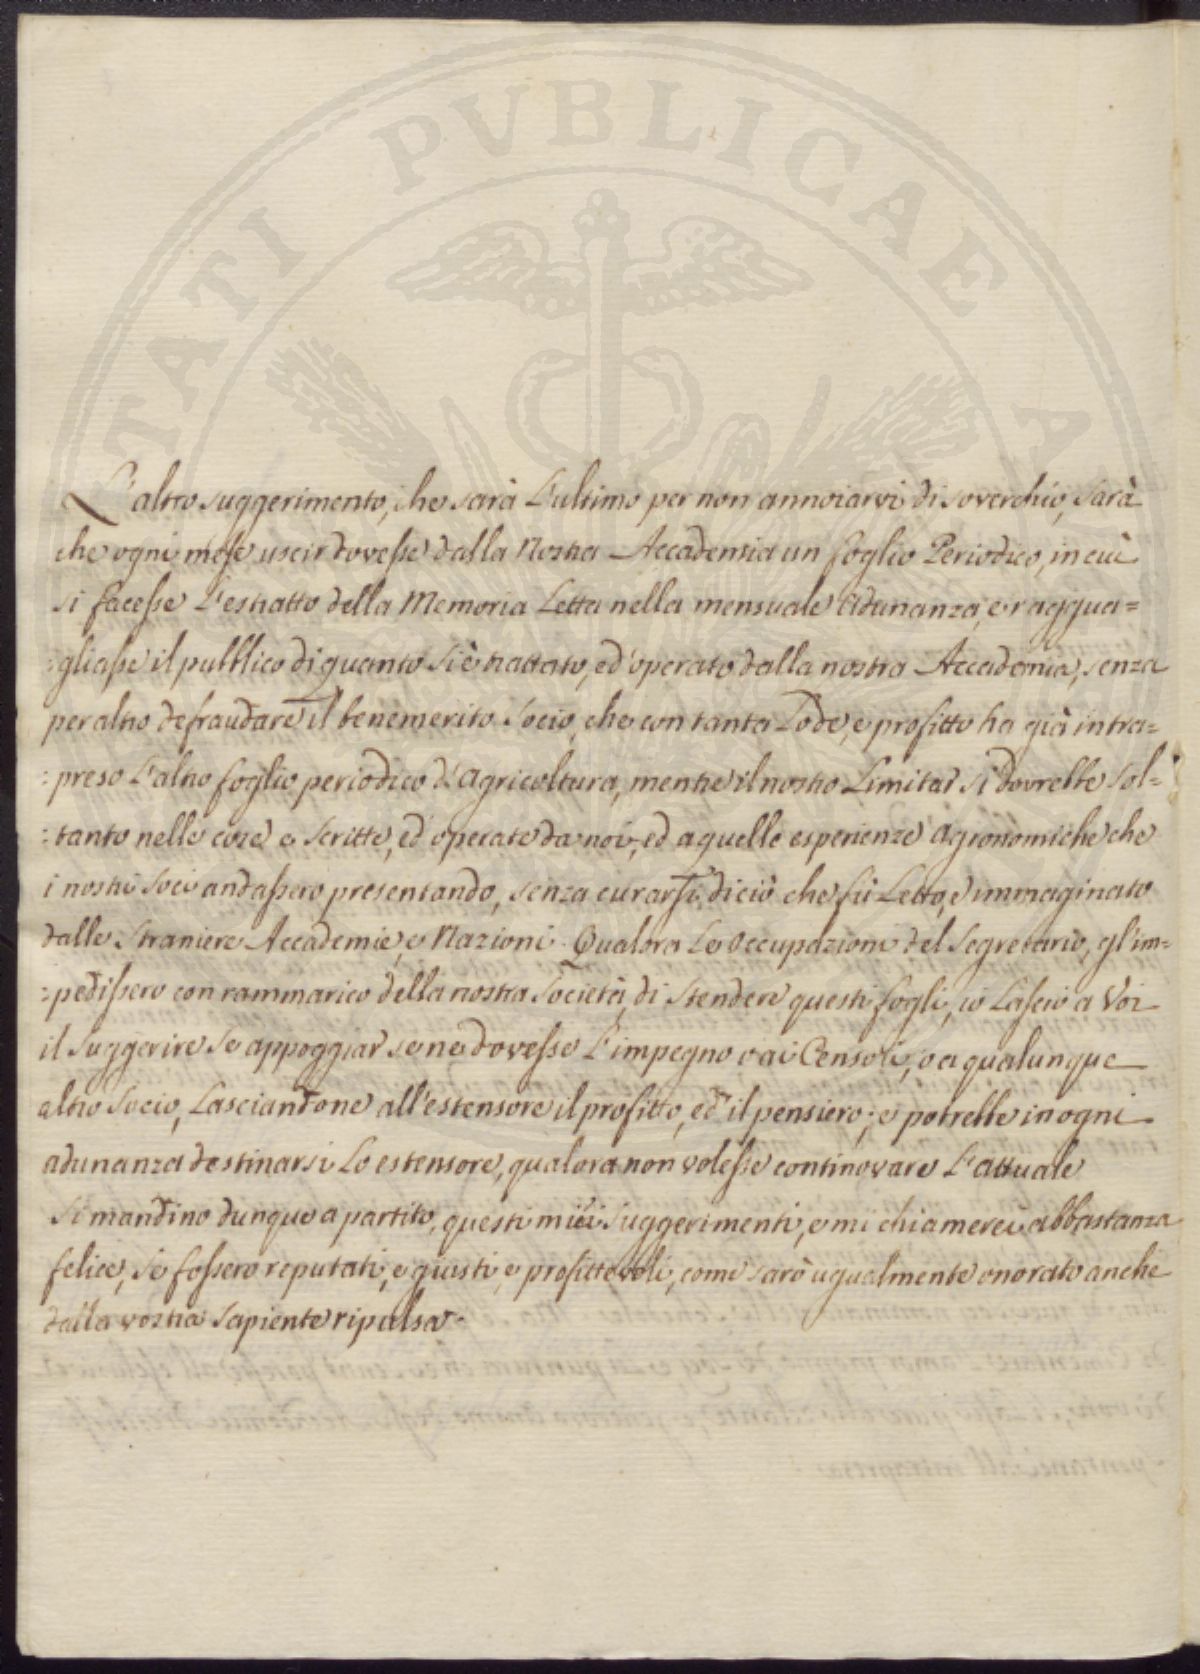 TATI PUBLICAE A
L'altro suggerimento, che sarà l'ultimo per non annoiarvi di soverchio, sarà
che ogni mese uscir dovesse dalla Nostra Accademia un foglio Periodico, in cui
si facesse l'estratto della Memoria Letta nella mensuale Adunanza, e raggua=
:gliasse il pubblico di quanto si è trattato, ed operato dalla nostra Accademia, senza
per altro defraudare il benemerito Socio, che con tanta Lode, e profitto ha già intra=
:preso l'altro foglio periodico d'Agricoltura, mentre il nostro Limitar si dovrebbe sol=
:tanto nelle cose e scritte, ed operate da noi, ed a quelle esperienze Agronomiche che
i nostri Soci andassero presentando, senza curarsi di ciò che fù Letto, e immaginato
dalle Straniere Accademie, e Nazioni. Qualora Le occupazioni del Segretario, gl'im=
:pedissero con rammarico della nostra Società, di stendere questi fogli, io Lascio a Voi
il suggerire se appoggiar se ne dovesse l'impegno o ai Censori, o a qualunque
altro Socio, Lasciandone all'estensore il profitto, ed il pensiero; e potrebbe in ogni
adunanza destinarsi Lo estensore, qualora non volesse continovare l'attuale
Si mandino dunque a partito, questi miei suggerimenti, e mi chiamerei abbastanza
felice, se fossero reputati, e giusti, e profittevoli, come sarò ugualmente onorato anche
dalla vostra sapiente ripulsa.